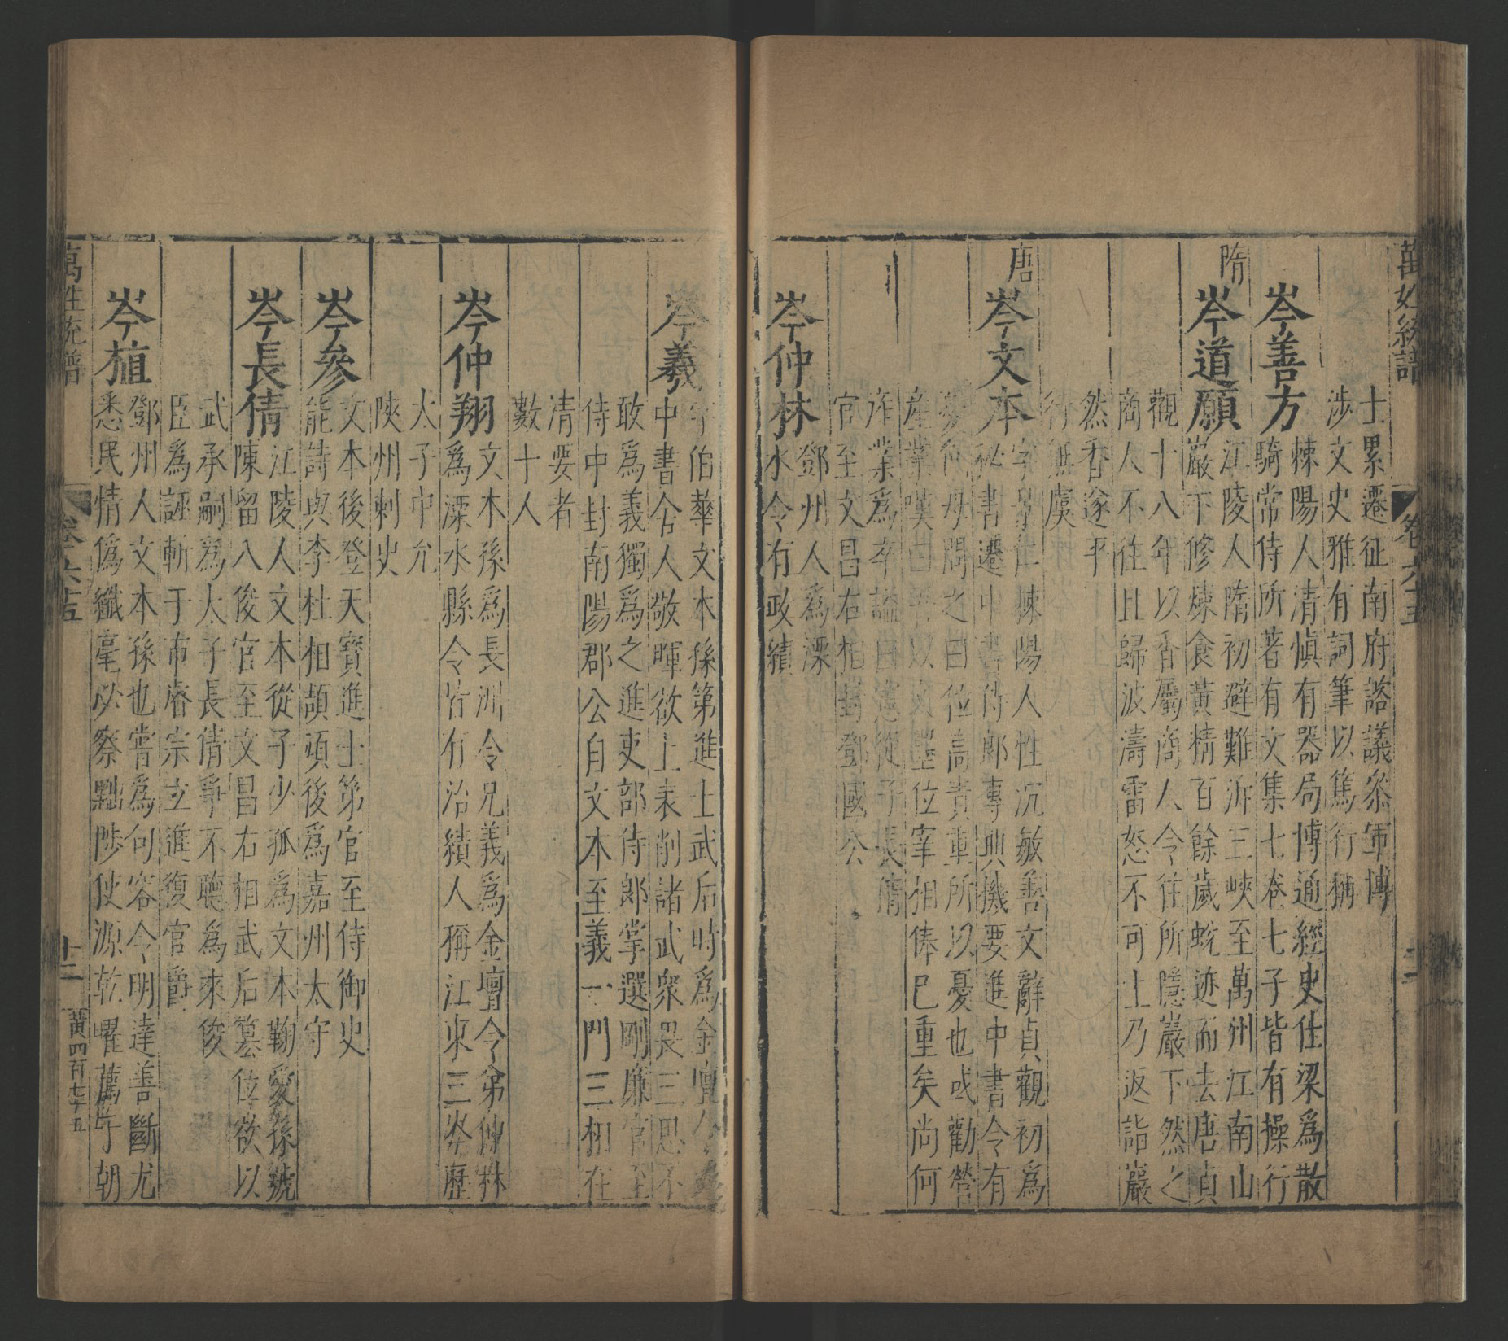 萬姓統譜
卷六十五
士累遷征南府諮議參軍博
涉文史雅有詞筆以篤行稱
岑善方
棘陽人清慎有器局博通經史仕梁爲散
騎常侍所著有文集七卷七子皆有操行
隋
岑道願
江陵人隋初避難泝三峽至萬州江南山
巖下修棟食黃精百餘歲蛻迹而去唐貞
觀十八年以香屬商人令往所隱巖下然之
商人不往且歸波濤雷怒不可上乃返詣巖
然香遂平
行無虞
唐
岑文本
字景仁棘陽人性沉敏善文辭貞觀初爲
秘書遷中書侍郎專典機要進中書令有
憂何母問之曰位高責重所以憂也或勸營
產業嘆曰吾以文墨位宰相俸已重矣尚何
產業爲卒謚曰憲從子長倩
官至文昌右相封鄧國公
岑仲林
鄧州人爲溧
水令有政績
岑羲
字伯華文本孫第進士武后時爲金壇令遷
中書舍人敬暉欲上表削諸武衆畏三思不
敢爲義獨爲之進吏部侍郎掌選剛廉官至
侍中封南陽郡公自文本至義一門三相在
清要者
數十人
岑仲翔
文本孫爲長洲令兄義爲金壇令弟仲林
爲溧水縣令皆有治績人稱江東三岑歷
太子中允
陝州刺史
岑參
文本後登天寶進士第官至侍御史
能詩與李杜相頡頏後爲嘉州太守
岑長倩
江陵人文本從子少孤爲文本鞠愛孫琥
陳留八俊官至文昌右相武后篡位欲以
武承嗣爲太子長倩爭不聽爲來俊
臣爲誣斬于市睿宗立進復官爵
岑植
鄧州人文本孫也嘗爲句容令明達善斷尤
悉民情僞纖毫必察黜陟使源乾曜薦于朝
萬姓統譜
卷六十五
十二
黃四百七十五